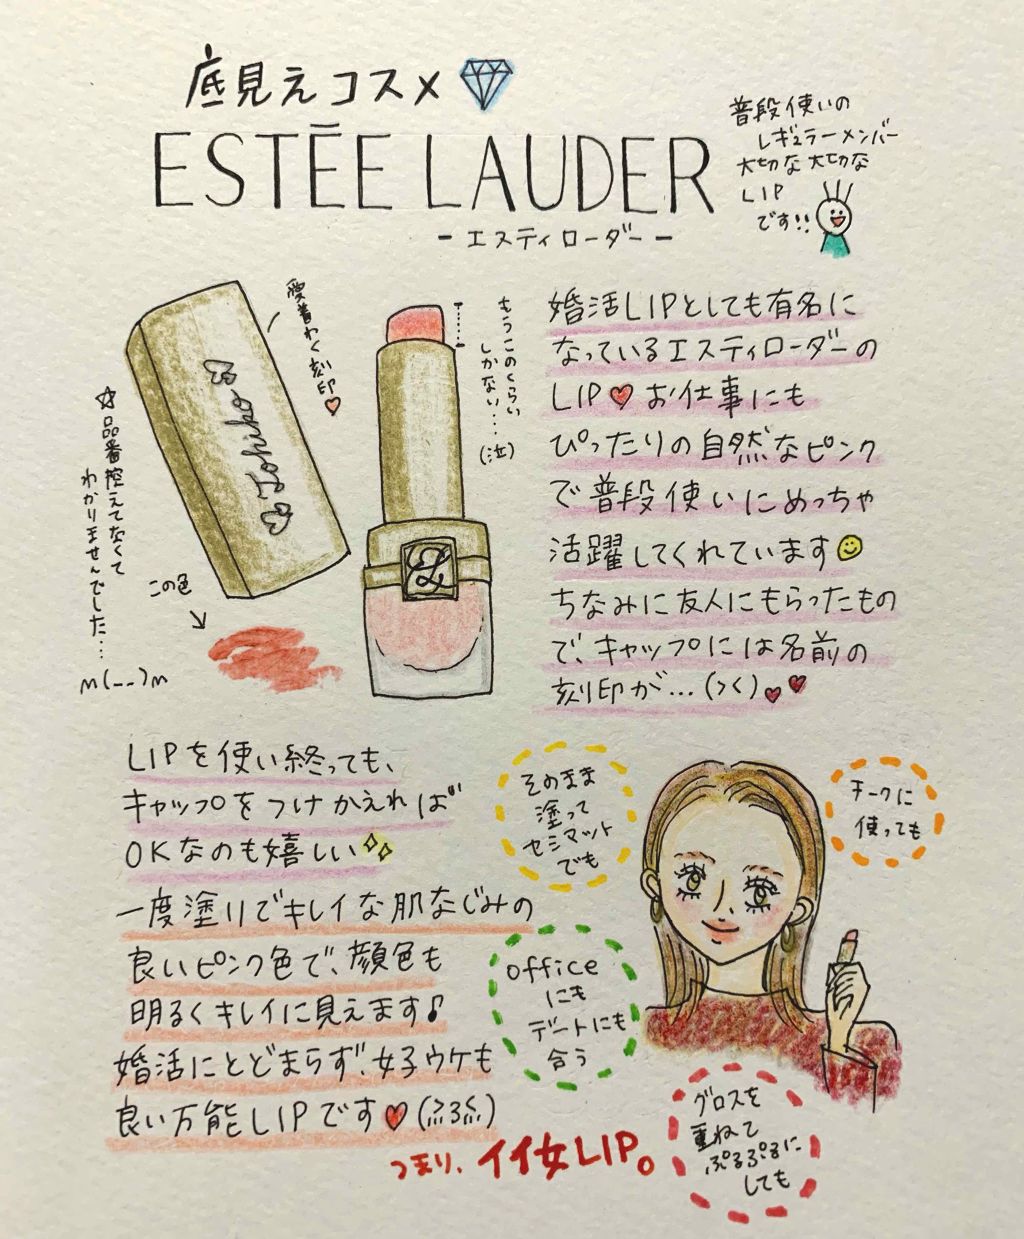 底見えコスメ
ESTĒE LAUDER
-エスティローダー-
普段使いの
レギュラーメンバー
大切な大切な
LIP
です!!
愛着わく刻印
Tohiko
もうこのくらい
しかない…
(泣)
☆品番控えてなくて
わかりませんでした…
m(__)m
この色
婚活LIPとしても有名に
なっているエスティローダーの
LIP♥お仕事にも
ぴったりの自然なピンク
で普段使いにめっちゃ
活躍してくれています
ちなみに友人にもらったもの
で、キャップには名前の
刻印が…(><)
LIPを使い終っても、
キャップをつけかえれば
OKなのも嬉しい
一度塗りでキレイな肌なじみの
良いピンク色で、顔色も
明るくキレイに見えます♪
婚活にとどまらず、女子ウケも
良い万能LIPです♥(ミ3ミ)
つまり、イイ女LIP。
そのまま
塗って
セミマット
でも
チークに
使っても
office
にも
デートにも
合う
グロスを
重ねて
ぷるぷるに
しても